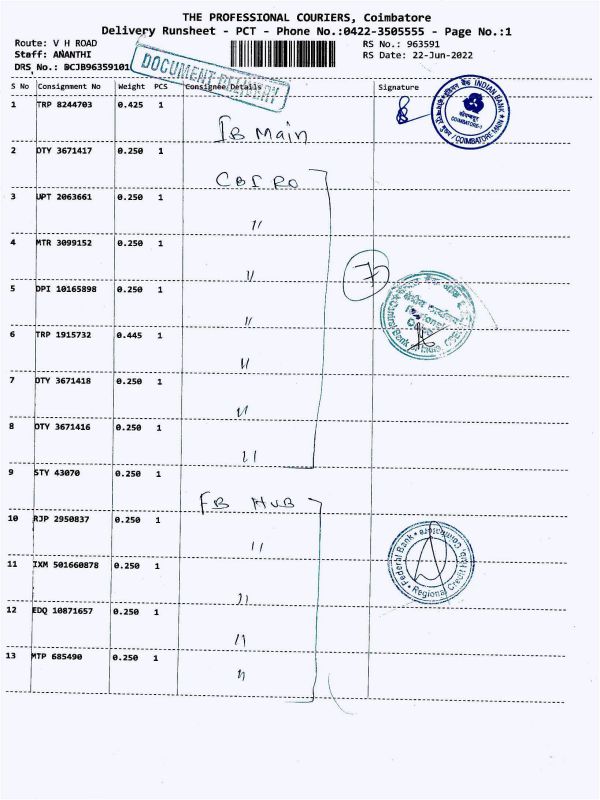 THE PROFESSIONAL COURIERS, Coimbatore
Delivery Runsheet - PCT - Phone No.:0422-3505555 - Page No.:1
Route: V H ROAD
RS No.: 963591
Staff: ANANTHI
RS Date: 22-Jun-2022
DRS No.: BCJB96359101
DOCUMENT DELIVERY
S No Consignment No Weight PCS Consignee Details Signature
1 TRP 8244703 0.425 1
IB Main
INDIAN BANK
COIMBATORE MAIN
2 DTY 3671417 0.250 1
CBI RO
3 UPT 2063661 0.250 1
"
4 MTR 3099152 0.250 1
"
7
5 DPI 10165898 0.250 1
"
6 TRP 1915732 0.445 1
"
7 DTY 3671418 0.250 1
"
8 DTY 3671416 0.250 1
"
9 STY 43070 0.250 1
FB HUB
10 RJP 2950837 0.250 1
"
Federal Bank
Regional Credit Hub, Coimbatore
11 IXM 501660878 0.250 1
"
12 EDQ 10871657 0.250 1
"
13 MTP 685490 0.250 1
"